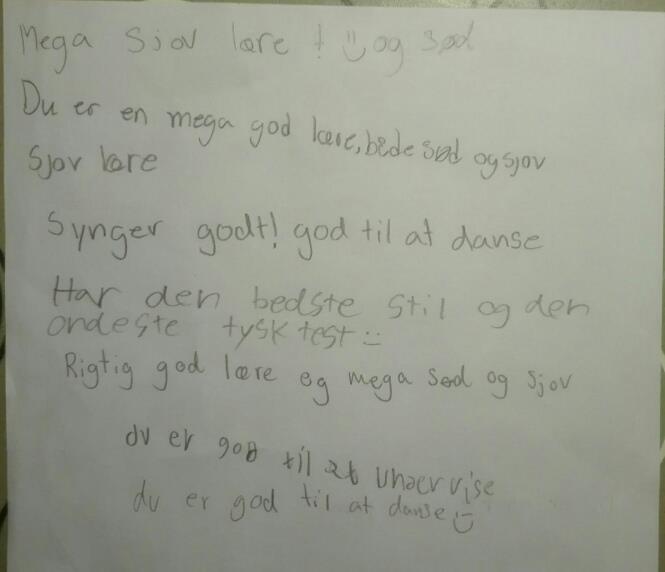 Mega Sjov lære ! :) og sød
Du er en mega god lære, både sød og sjov
Sjov lære
Synger godt! god til at danse
Har den bedste stil og den
ondeste tysk test :)
Rigtig god lære og mega sød og sjov
du er god til at unaervise
du er god til at danse :)